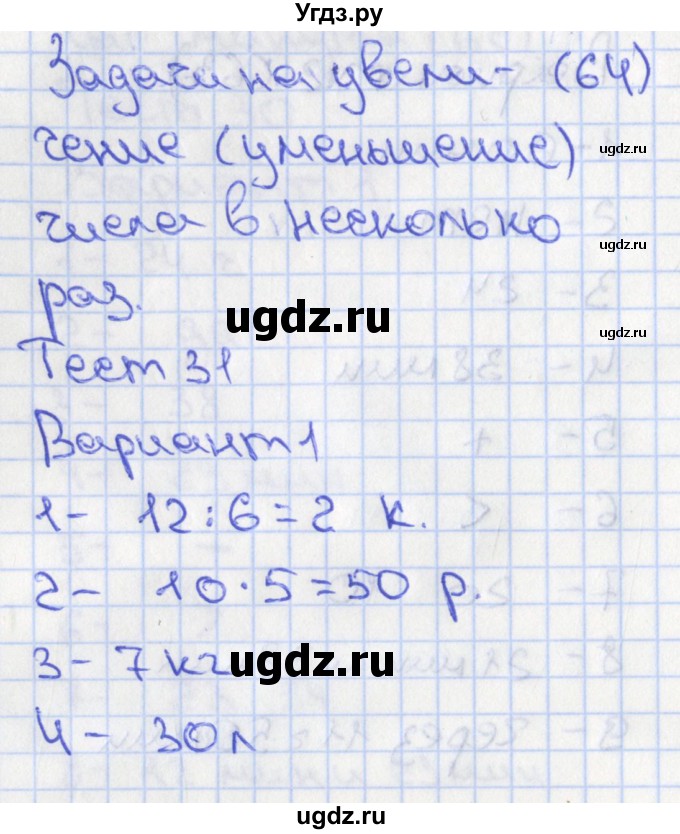 Угдз.ру
Задачи на увели- (64)
ugdz.ru
чение (уменьшение)
числа в несколько
ugdz.ru
раз.
ugdz.ru
ugdz.ru
Тест 31
Вариант 1
1- 12:6=2 к.
ugdz.ru
2- 10·5=50 р.
3- 7 кг
ugdz.ru
ugdz.ru
4- 30 л
ugdz.ru
ugdz.ru